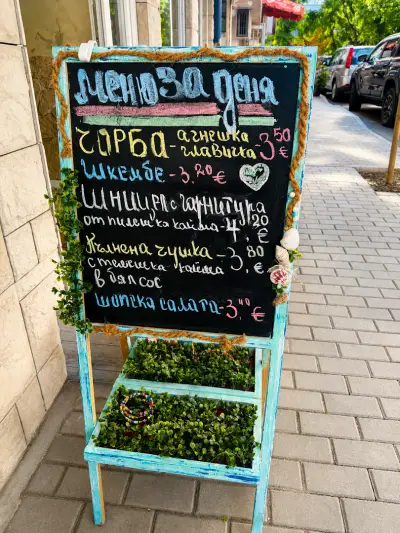 Меню за деня
ЧОРБА - агнешка 3,50
главичка - €
Шкембе - 3,20 €
Шницел с гарнитура
от пилешка кайма - 4,20 €
Пълнена чушка - 3,80
с телешка кайма €
в бял сос
шопска салата - 3,40 €